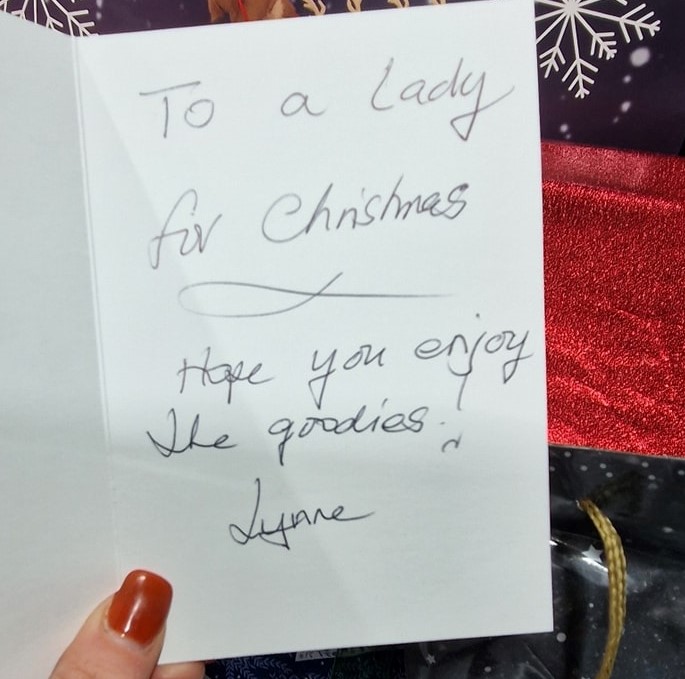 To a Lady
for Christmas
Hope you enjoy
the goodies!
Lynne